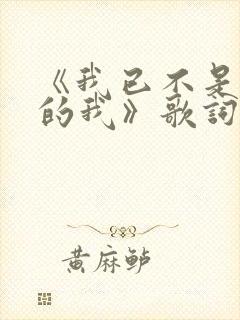 《我已不是
的我》歌词
黄麻鲈